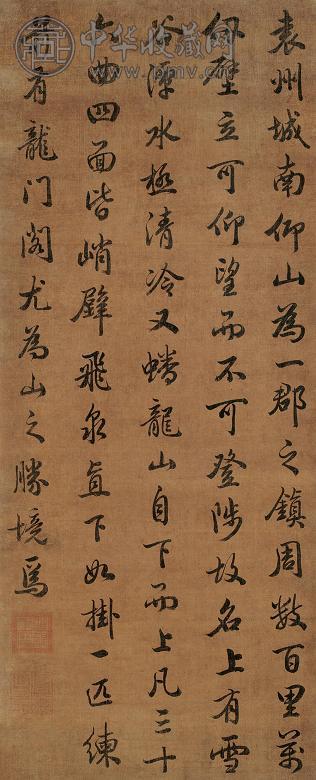 中华收藏网
www.jpmv.com
袁州城南仰山為一郡之鎮周數百里萬
仞壁立可仰望而不可登陟故名上有雪
潭水極清冷又蟠龍山自下而上凡三十
六曲四面皆峭壁飛泉直下如掛一匹練
有龍門閣尤為山之勝境焉